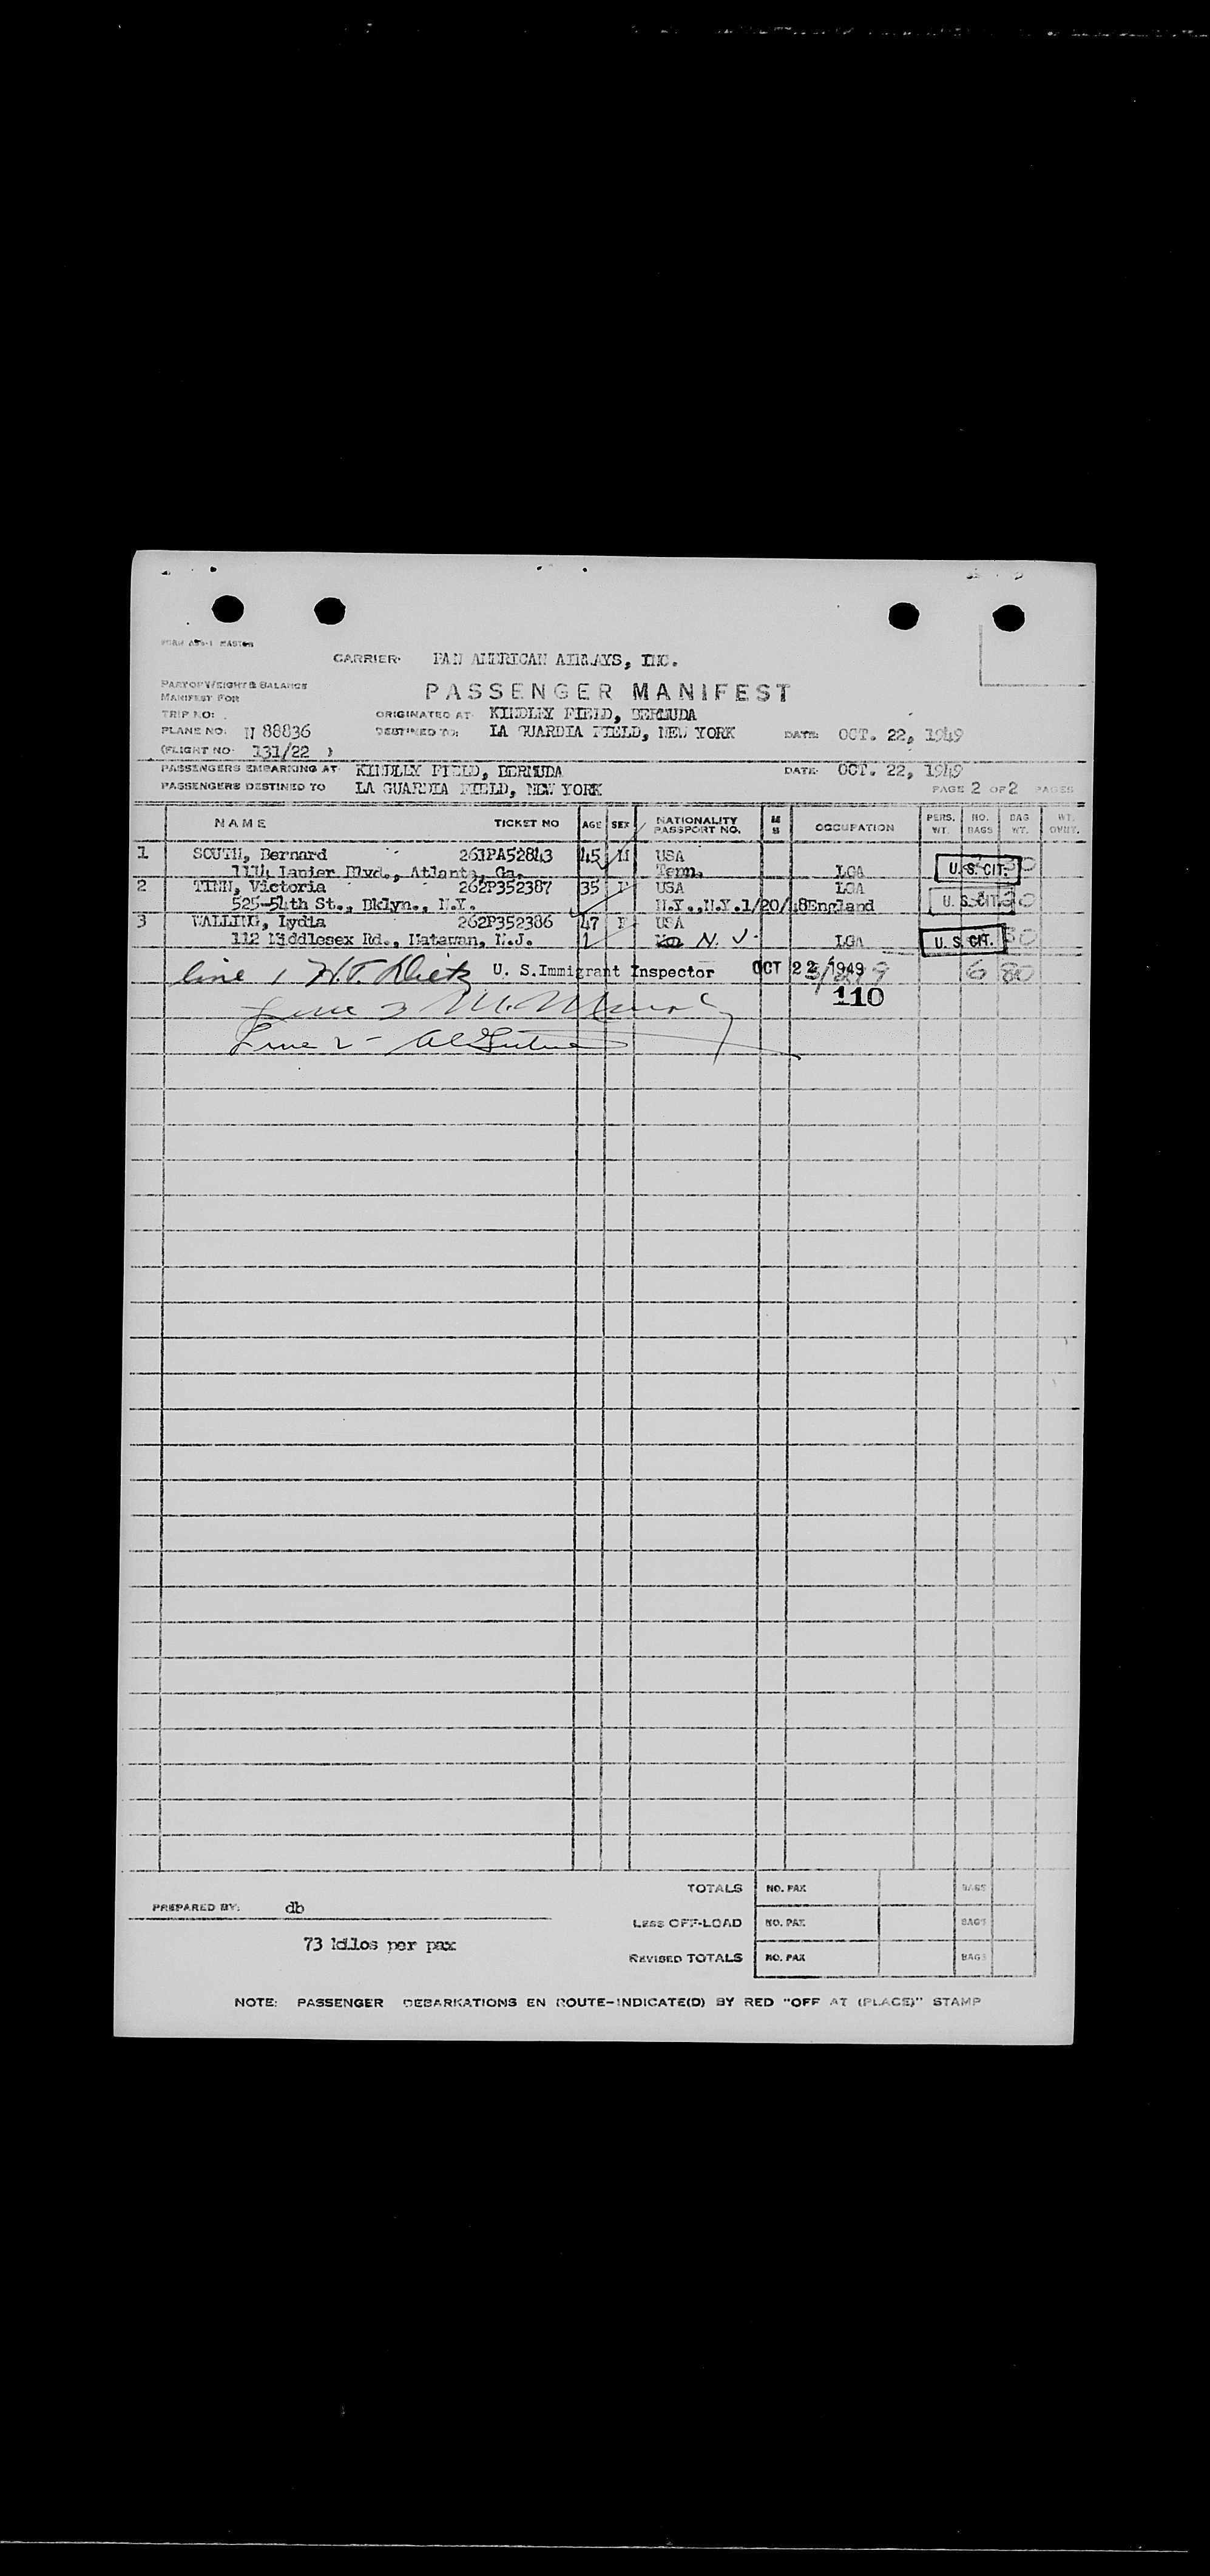 CARRIER: PAN AMERICAN AIRWAYS, INC.
PART OF WEIGHT & BALANCE
MANIFEST FOR
PASSENGER MANIFEST
TRIP NO: ORIGINATED AT: KINDLEY FIELD, BERMUDA
PLANE NO: N 88836 DESTINED TO: LA GUARDIA FIELD, NEW YORK DATE: OCT. 22, 1949
(FLIGHT NO: 131/22 )
PASSENGERS EMBARKING AT: KINDLEY FIELD, BERMUDA DATE: OCT. 22, 1949
PASSENGERS DESTINED TO LA GUARDIA FIELD, NEW YORK PAGE 2 OF 2 PAGES
NAME TICKET NO AGE SEX NATIONALITY PASSPORT NO. M S OCCUPATION PERS. WT. NO. BAGS BAG WT. WT. OVHT.
1 SOUTH, Bernard 261PA52843 45 M USA
1114 Lanier Blvd., Atlanta, Ga. Tenn. LGA U.S. CIT.
2 TINN, Victoria 262P352387 35 F USA LGA
525-54th St., Bklyn., N.Y. N.Y.,N.Y.1/20/48England U.S. CIT.
3 WALLING, Lydia 262P352386 47 F USA
112 Middlesex Rd., Matawan, N.J. N. J. LGA U.S. CIT.
line 1 H.T. Dietz U. S. Immigrant Inspector OCT 22 1949 6 80
110
Line 3 M.
Line 2 -
TOTALS NO. PAX BAGS
PREPARED BY: db
LESS OFF-LOAD NO. PAX BAGS
73 kilos per pax
REVISED TOTALS NO. PAX BAGS
NOTE: PASSENGER DEBARKATIONS EN ROUTE-INDICATE(D) BY RED "OFF AT (PLACE)" STAMP